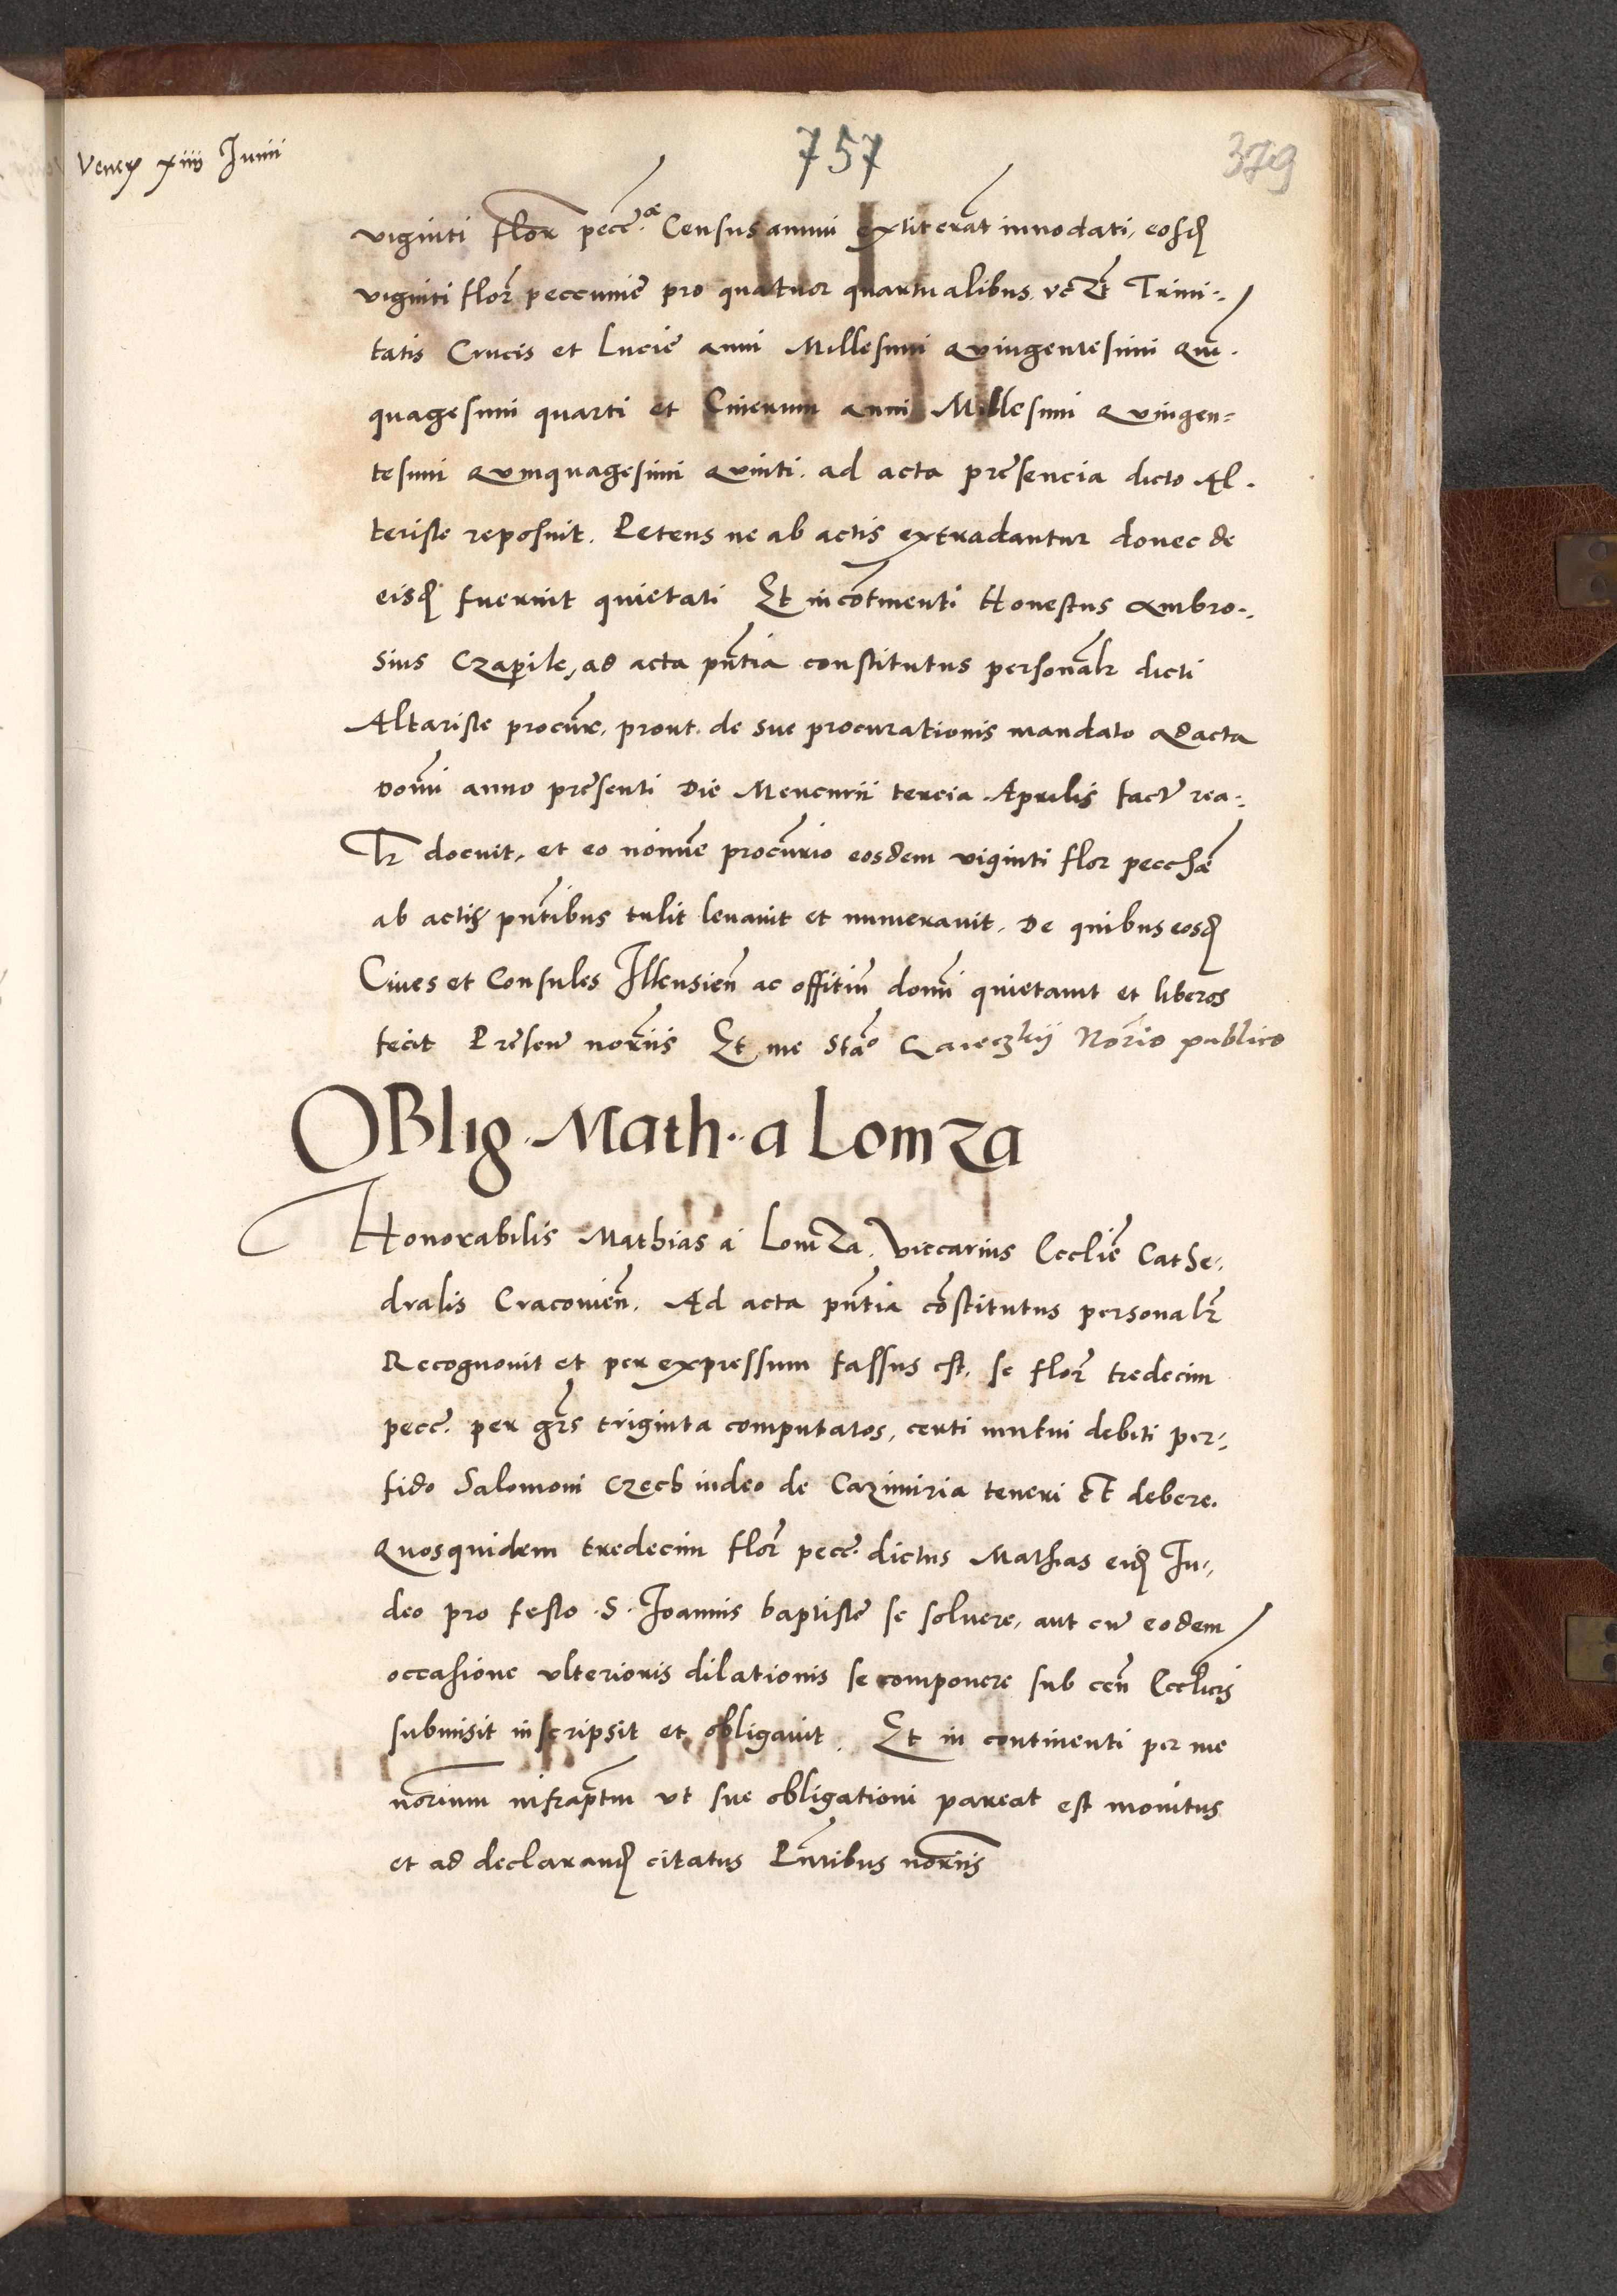 Vener xiiii Junii
757
379
viginti flor pecce Census annui extiterat innodati, eosd
viginti flor peccunie pro quatuor quartualibus vczt Trini-
tatis Crucis et Lucie anni Millesimi Quingentesimi Quin-
quagesimi quarti et Cinerum anni Millesimi Quingen=
tesimi Quinquagesimi Quinti. ad acta presencia dicto Al-
teriste reposuit. Petens ne ab actis extradantur donec de
eisd fuerint quietati Et in cotinenti Honestus Ambro-
sius ad acta pntia constitutus personalr dicti
Altariste procur, prout de sue procurationis mandato ad acta
domi anno presenti Die Mercurii tercia Aprilis fact rea-
lr docuit, et eo noie procurio eosdem viginti flor
ab actis pntibus tulit levavit et numeravit. De quibus eosd
Cives et Consules Illensien ac offitiu domi quietavit et liberos
fecit Presen noriis Et me Stao Norio publico
OBlig. Math. a Lomza
Honorabilis Mathias a Lomza. Viccarius Ecclie Cathe-
dralis Cracovien. Ad acta pntia costitutus personalr
Recognovit et per expressum fassus est, se flor tredecim
pecce. per grs triginta computatos, certi mutui debiti per-
fido Salomoni Czech iudeo de Cazimiria teneri et debere.
Quosquidem tredecim flor pecce dictus Mathias eid Iu-
deo pro festo S. Joannis baptiste se solvere, aut cu eodem
occasione ulterioris dilationis se componere sub cen Ecclicis
submisit inscripsit et obligavit. Et in continenti per me
norium infraptm ut sue obligationi pareat est monitus
et ad declarand citatus Pntibus noriis